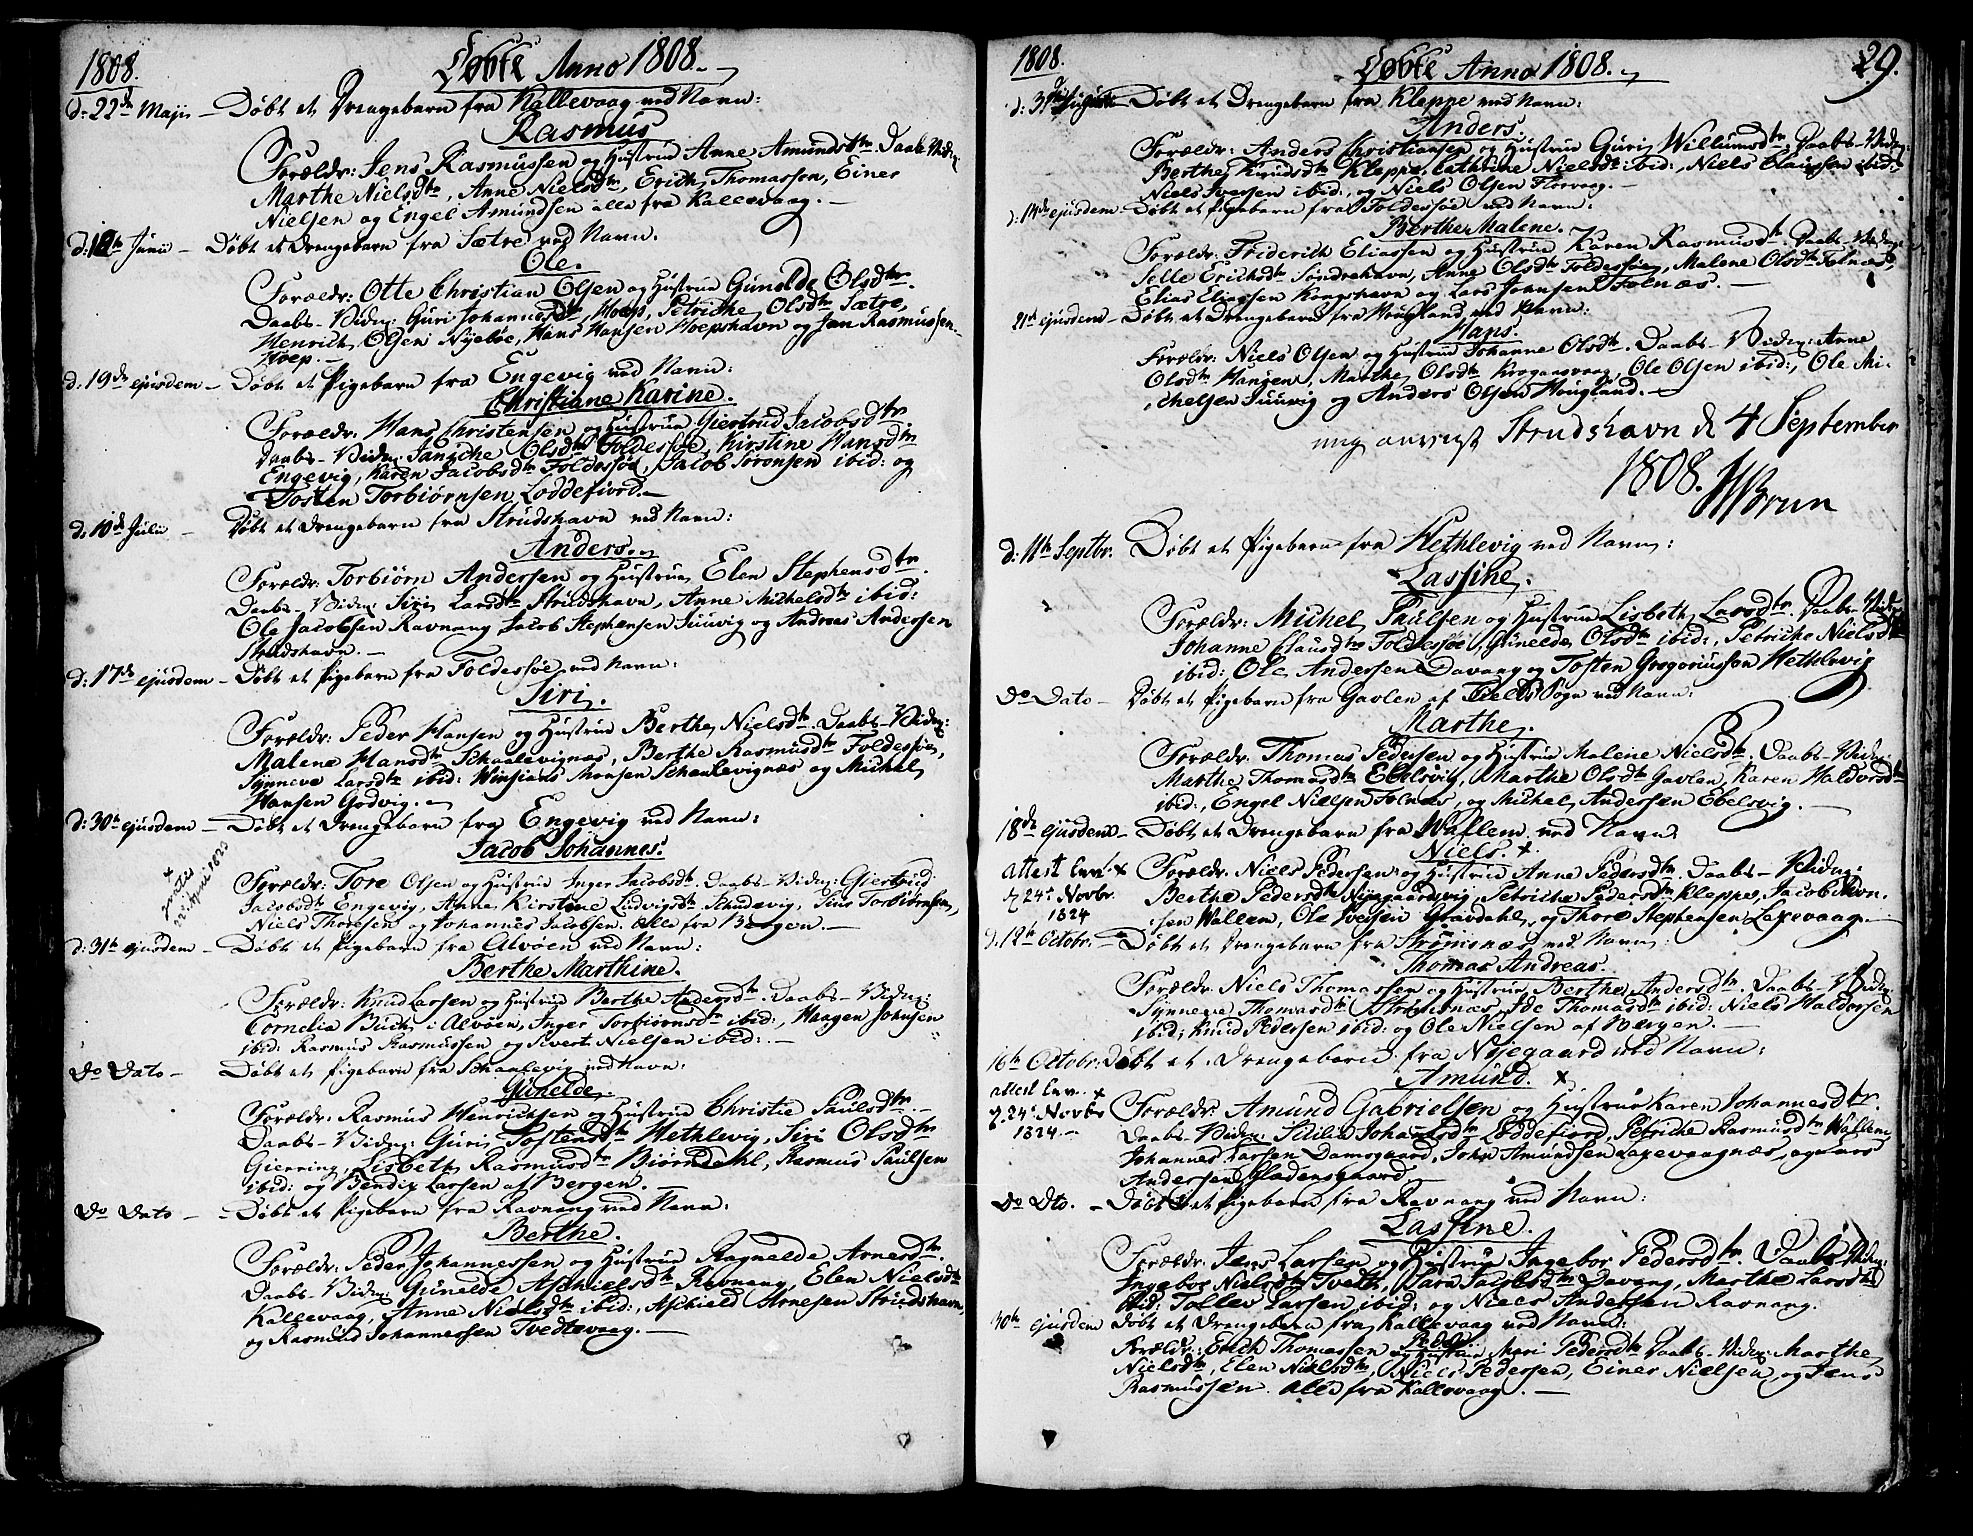 1808. Døbte Anno 1808.
d: 22de Maji – Døbt et Drengebarn fra Kallevaag ved Navn:
Rasmus
Forældr: Jens Rasmussen og Hustrue Anne Amundsdtr. Daabs-Vidn:
Marthe Nielsdtr, Anne Nielsdtr, Erich Thomassen, Einer
Nielsen og Engel Amundsen alle fra Kallevaag. –
d: 12te Junii – Døbt et Drengebarn fra Sætre ved Navn.
Ole.
Forældr: Otte Christian Olsen og Hustrue Gunelde Olsdtr.
Daabs-Vidn: Guri Johannesdtr, Hoep, Petriche Olsdtr Sætre,
Henrich Olsen Nijebøe, Hans Hansen Hoepshavn og Jan Rasmussen
Hoep. –
d. 19de ejusdem – Døbt et Pigebarn fra Engevig ved Navn:
Christiane Karine.
Forældr. Hans Christensen og Hustrue Giertrud Jacobsdtr
Daabs-Vidn: Olsdtr Foldessøe, Kirstine Hansdtr
Engevig, Karen Jacobsdtr Foldessøe, Jacob Sørensen ibid: og
Tosten Torbiørnsen Loddefiord. –
d: 10de Julii – Døbt et Drengebarn fra Strudshavn ved Navn:
Anders.
Forældr: Torbiørn Andersen og Hustrue Elen Stephensdtr.
Daabs-Vidn: Siri Larsdtr Strudshavn, Anne Michelsdtr ibid:
Ole Jacobsen Ravnang Jacob Stephensen Juuvig og Andreas Andersen
Strudshavn. –
d: 17de ejusdem – Døbt et Pigebarn fra Foldessøe ved Navn:
Siri.
Forældr: Peder Hansen og Hustrue Berthe Nielsdtr. Daabs-Vidn:
Malene Hansdtr Schaalevignæs, Berthe Rasmusdtr Foldessøe,
Synneve Larsdtr ibid: Monsen Schaalevignæs og Michel
Hansen Godvig. –
d: 30te ejusdem – Døbt et Drengebarn fra Engevig ved Navn:
Jacob Johannes.
22 April 1823
Forældr: Tore Olsen og Hustrue Inger Jacobsdtr. Daabs-Vidn: Giertrud
Jacobsdtr Engevig, Anne Kirstine Ludvigsdtr Strudevig, Jens Torbiørnsen,
Niels Thoresen og Johannes Jacobsen. Alle fra Bergen. –
d: 31te ejusdem – Døbt et Pigebarn fra Alvøen ved Navn:
Berthe Marthine.
Forældr: Knud Larsen og Hustrue Berthe Andersdtr. Daabs-Vidn:
Cornelia Buch i Alvøen, Inger Torbiørnsdtr ibid:, Haagen Johnsen
ibid: Rasmus Rasmussen og Sivert Nielsen ibid: –
Do Dato – Døbt et Pigebarn fra Schaalevig ved Navn:
Gunelde.
Forældr: Rasmus Henrichsen og Hustrue Christie Paulsdtr.
Daabs-Vidn: Guri Tostensdtr Hethlevig, Siri Olsdtr
Gierring, Lisbeth Rasmusdtr Biørndahl, Rasmus Paulsen
ibid: og Bendix Larsen af Bergen. –
Do Dato – Døbt et Pigebarn fra Ravnang ved Navn:
Berthe.
Forældr: Peder Johannessen og Hustrue Ragnelde Arnesdtr.
Daabs-Vidn: Gunelde Aschielsdtr Ravnang, Elen Nielsdtr
Kallevaag, Anne Nielsdtr ibid:, Aschield Arnesen Strudshavn,
og Rasmus Johannessen Tvedtevaag. –
1808. Døbte Anno 1808. 29.
d: Døbt et Drengebarn fra Kleppe ved Navn:
Anders.
Forældr: Anders Christiansen og Hustrue Guri Willumsdtr. Daabs-Vidn:
Berthe Knudsdtr Kleppe, Cathrine Nielsdtr ibid:, Niels Clausen ibid:
Niels Iversen ibid:, og Niels Olsen Florvaag. –
d: 14de ejusdem – Døbt et Pigebarn fra Foldessøe ved Navn:
Berthe Malene.
Forældr: Friderich Eliassen og Hustrue Karen Rasmusdtr. Daabs-Vidn:
Sille Erichsdtr Søndrehavn, Anne Olsdtr Foldessøe, Malene Olsdtr Folnæs,
Elias Eliassen Kongshavn og Lars Johnsen Folnæs. –
21de ejusdem – Døbt et Drengebarn fra Hougland ved Navn:
Hans.
Forældr: Niels Olsen og Hustrue Johanne Olsdtr. Daabs-Vidn: Anne
Olsdtr Hansen, Marthe Olsdtr Krogansvaag, Ole Olsen ibid:, Ole Mi-
chelsen Juuvig og Anders Olsen Hougland. –
Strudshavn d 4 September
1808. HBrun
d: 11te Septbr. Døbt et Pigebarn fra Hethlevig ved Navn:
Lassine.
Forældr: Michel Poulsen og Hustrue Lisbeth Larsdtr. Daabs-Vidn:
Johanne Clausdtr Foldessøe, Gunelde Olsdtr ibid:, Petriche Nielsdtr
ibid: Ole Andersen Davang og Tosten Gregoriussen Hethlevig
Do Dato – Døbt et Pigebarn fra Gavlen af Fields Sogn ved Navn:
Marthe.
Forældr: Thomas Pedersen og Hustrue Malene Nielsdtr. Daabs-Vidn:
Marthe Thomasdtr Ebelsvig, Marthe Olsdtr Gavlen, Karen Haldorsdtr
ibid:, Engel Nielsen Folnæs, og Michel Andersen Ebelsvig. –
18de ejusdem – Døbt et Drengebarn fra Wallem ved Navn
Niels. ×
attest lev. ×
d. 24de Novbr.
1824
Forældr: Niels Pedersen og Hustrue Anne Pedersdtr. Daabs-Vidn:
Berthe Pedersdtr Nijegaardsvig, Petriche Pedersdtr Kleppe, Jacob Ivor-
sen Wallem, Ole Iversen Gravdahl, og Thore Stephensen Laxevaag.
d. 12te Octobr. – Døbt et Drengebarn fra Strømsnæs ved Navn:
Thomas Andreas.
Forældr: Niels Thomassen og Hustrue Berthe Andersdtr. Daabs-Vidn:
Synneva Thomasdtr Strømsnæs, Ide Thomasdtr ibid: Niels Haldorsen
ibid: Knud Pedersen ibid: og Ole Nielsen af Bergen. –
16te Octobr: Døbt et Drengebarn fra Nijegaard ved Navn:
Amund. ×
attest lev. ×
d. 24de Novbr
1824. –
Forældr: Amund Gabrielsen og Hustrue Karen Johannesdtr.
Daabs-Vidn: Johannesdtr Loddefiord, Petriche Rasmusdtr Wallem
Johannes Larsen Damsgaard, John Amundsen Laxevaagnæs, og Lars
Andersen Gladensgaard
Do Dto. – Døbt et Pigebarn fra Ravnang ved Navn:
Lassine.
Forældr: Jens Larsen og Hustrue Ingebor Pedersdtr. Daabs-Vidn:
Ingebor Nielsdtr Tvedt, Sara Davang, Marthe Larsdtr
ibid: Tollev Larsen ibid: og Niels Andersen Ravnang.
30te ejusdem Døbt et Drengebarn fra Kallevaag ved Navn:
Peder
Forældr: Erich Thomassen og Hustrue Mari Pedersdtr Daabs-Vidn: Marthe
Nielsdtr, Elen Nielsdtr, Niels Pedersen, Einer Nielsen, og Jens
Rasmussen. alle fra Kallevaag. –